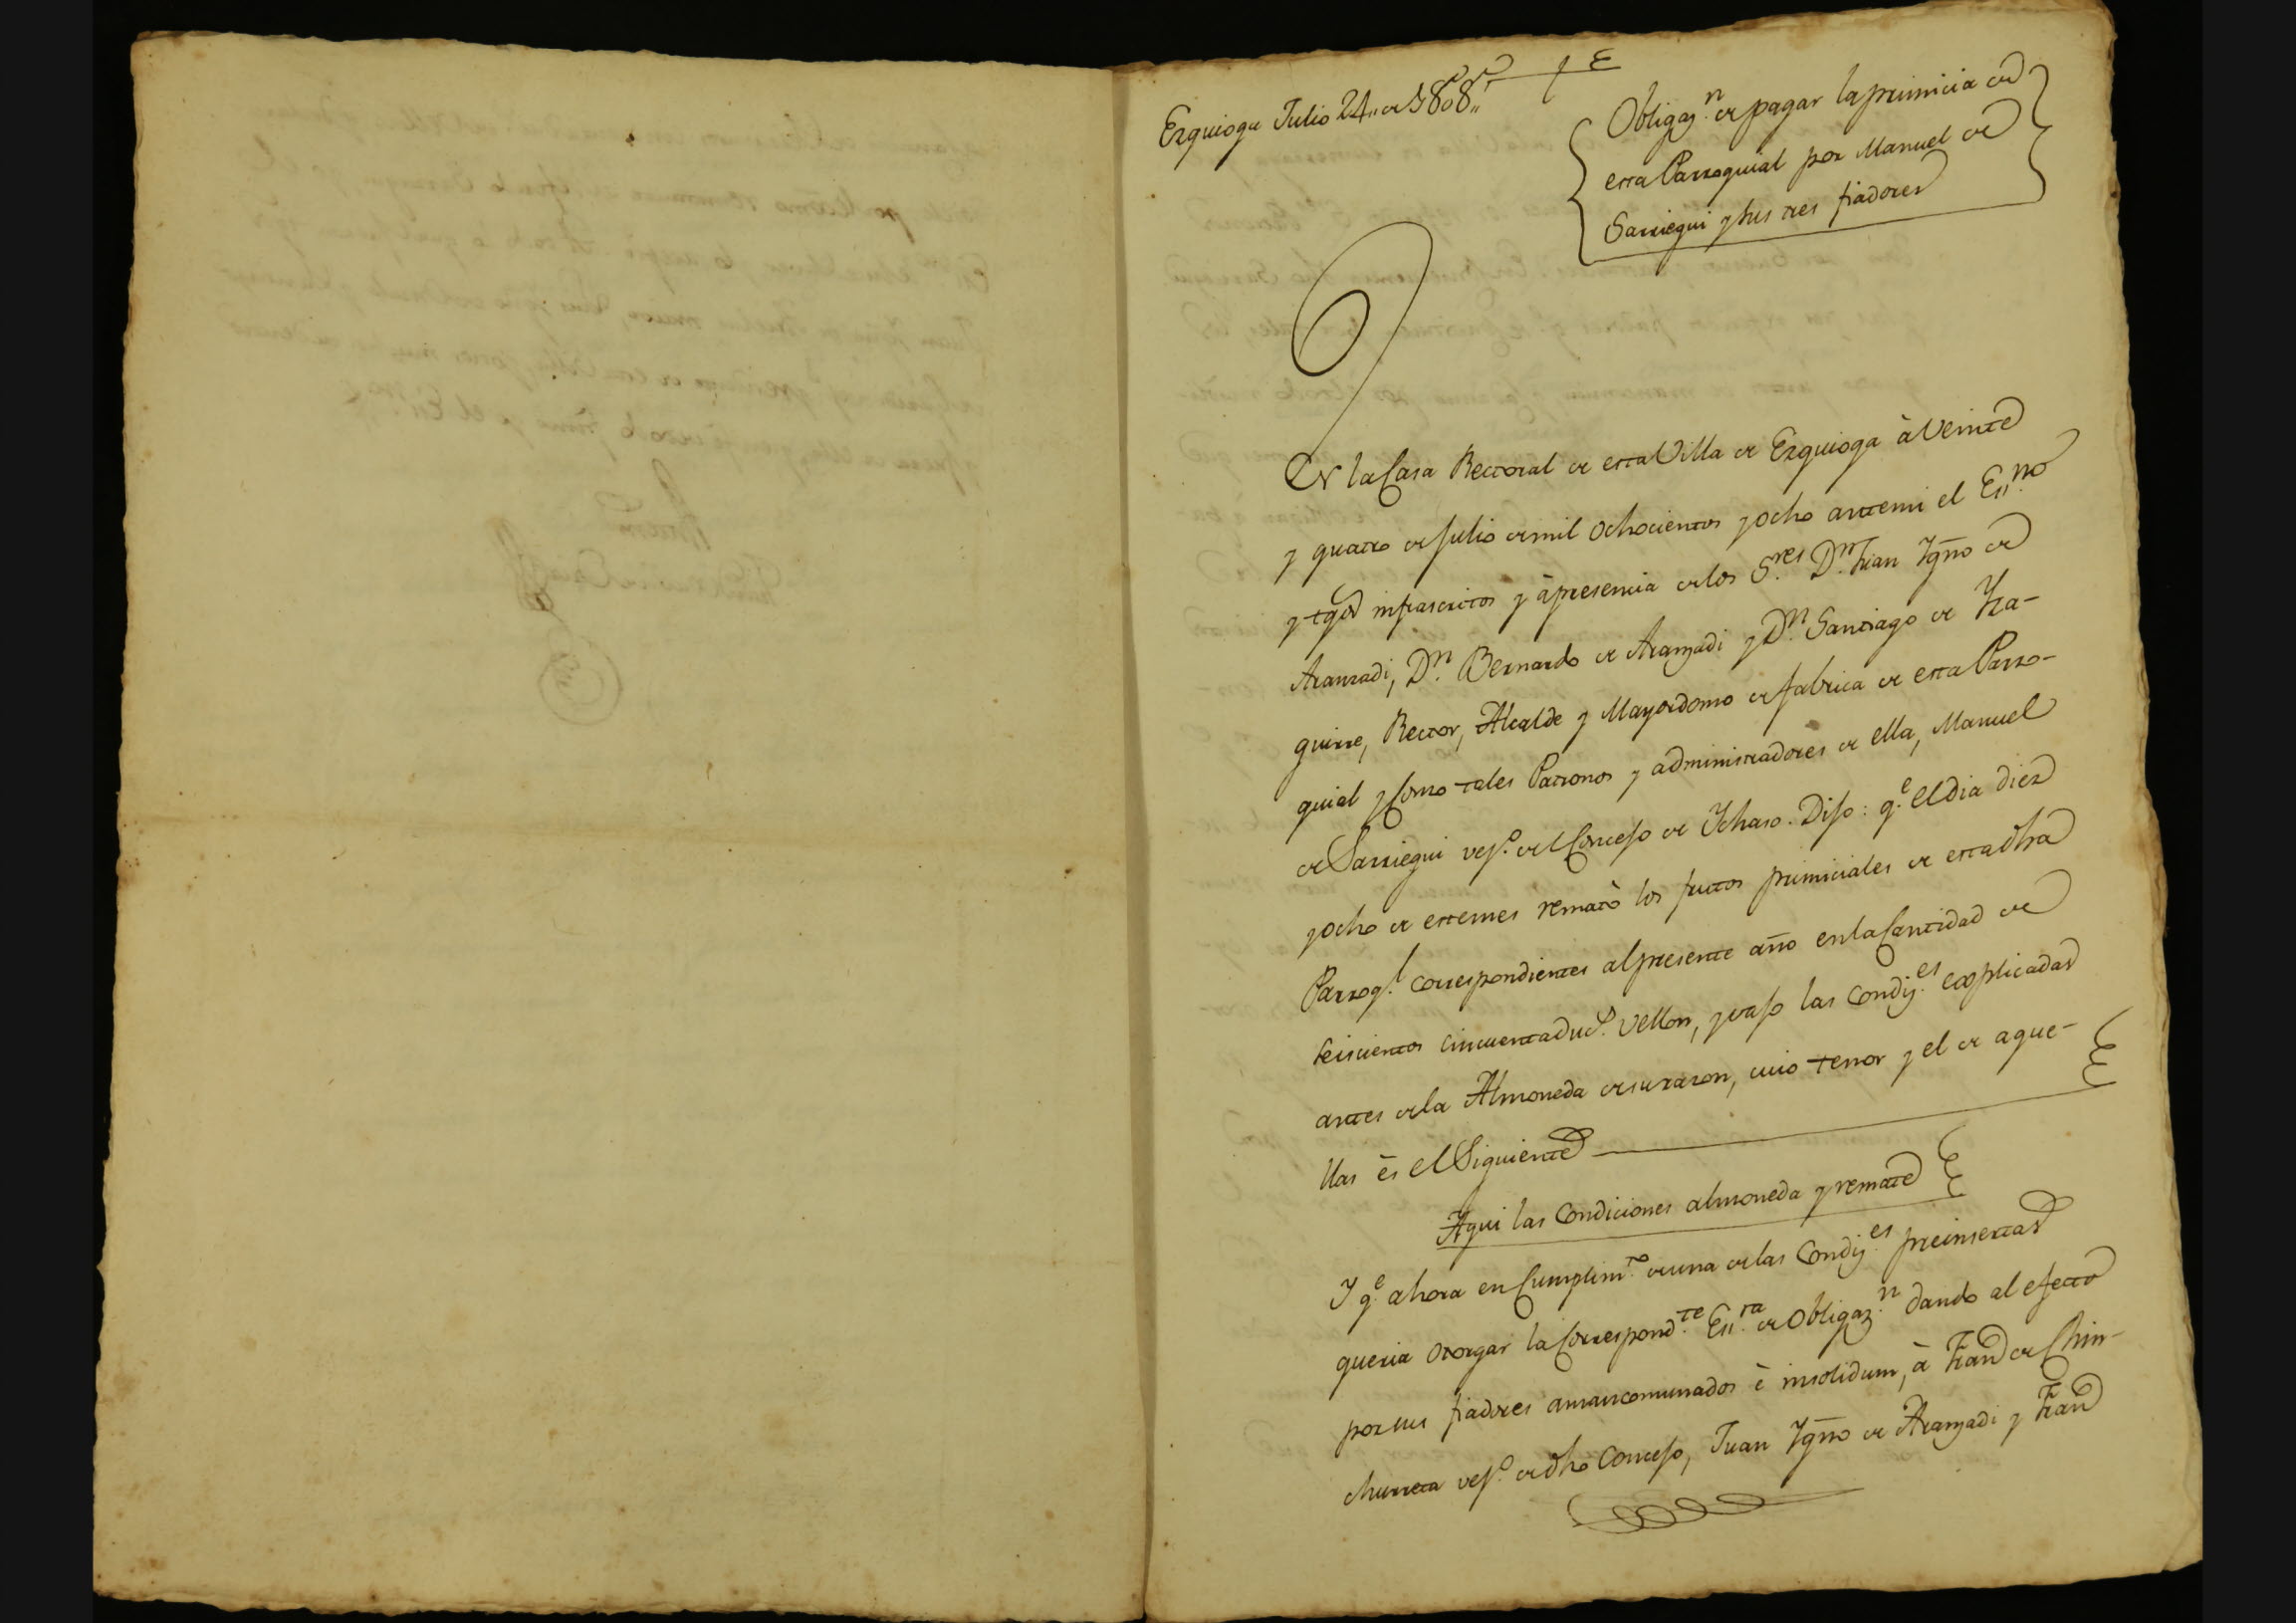 Ezquioga Julio 24,, de 1808,,
Obligaz.n de pagar la primicia de
esta Parroquial por Manuel de
Sarriegui y sus tres fiadores
En la Casa Rectoral de esta Villa de Ezquioga à Veinte
y quatro de Julio de mil ochocientos y ocho ante mi el Ess.no
y tgos infrascritos y à presencia de los S.res D.n Juan Ygño de
Aranzadi, D.n Bernardo de Aranzadi y D.n Santiago de Yza-
guirre, Rector, Alcalde y Mayordomo de fabrica de esta Parro-
quial y como tales Patronos y administradores de ella, Manuel
de Sarriegui vez.o del Concejo de Ychaso. Dijo: q.e el dia diez
y ocho de este mes remató los frutos primiciales de esta dha
Parroq.l correspondientes al presente año en la Cantidad de
seiscientos cincuenta duc.s vellon, y vajo las condiz.es explicadas
antes de la Almoneda de su razon, cuio tenor y el de aque-
llas ês el Siguiente
Aqui las Condiciones almoneda y remate
Y q.e ahora en Cumplim.to de una de las Condiz.es preinsertas
queria otorgar la Correspond.te Ess.ra de Obligaz.n dando al efecto
por sus fiadores amancomunados è insolidum, à Fran.co de Chin-
churreta vez.o de dho Concejo, Juan Ygño de Aranzadi y Fran.co